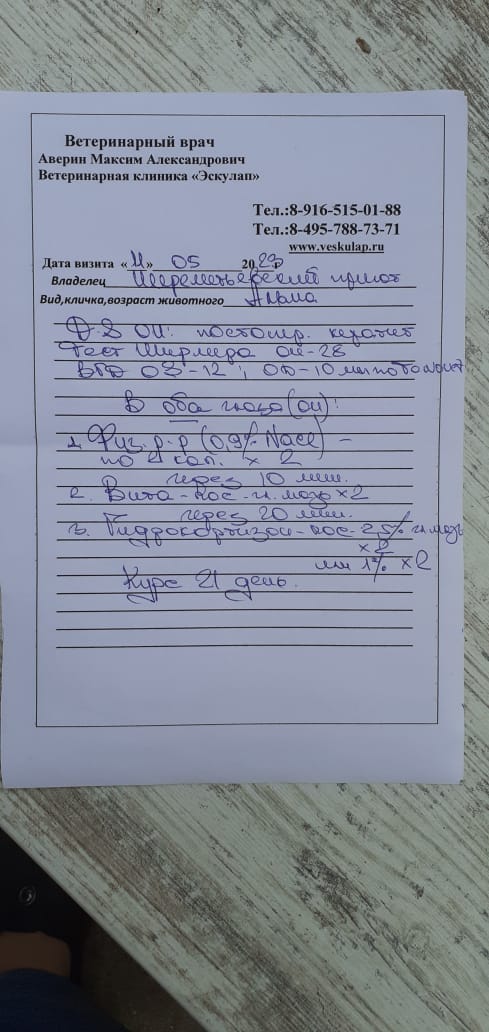 Ветеринарный врач
Аверин Максим Александрович
Ветеринарная клиника «Эскулап»
Тел.:8-916-515-01-88
Тел.:8-495-788-73-71
www.veskulap.ru
Дата визита «11» 05 2023г
Владелец Шереметьевский приют
Вид,кличка,возраст животного Альма
D.S OU: кератит
Тест Ширмера OU-28
ВГД OS-12; OD-10 мм
В оба глаза (OU):
1. Физ. р-р (0,9% NaCl) –
по 2 кап. x 2
через 10 мин.
2. Вита-пос-гл. мазь x2
через 20 мин.
3. Гидрокортизон-пос-2,5% гл. мазь
x 2
или 1% x2
Курс 21 день.